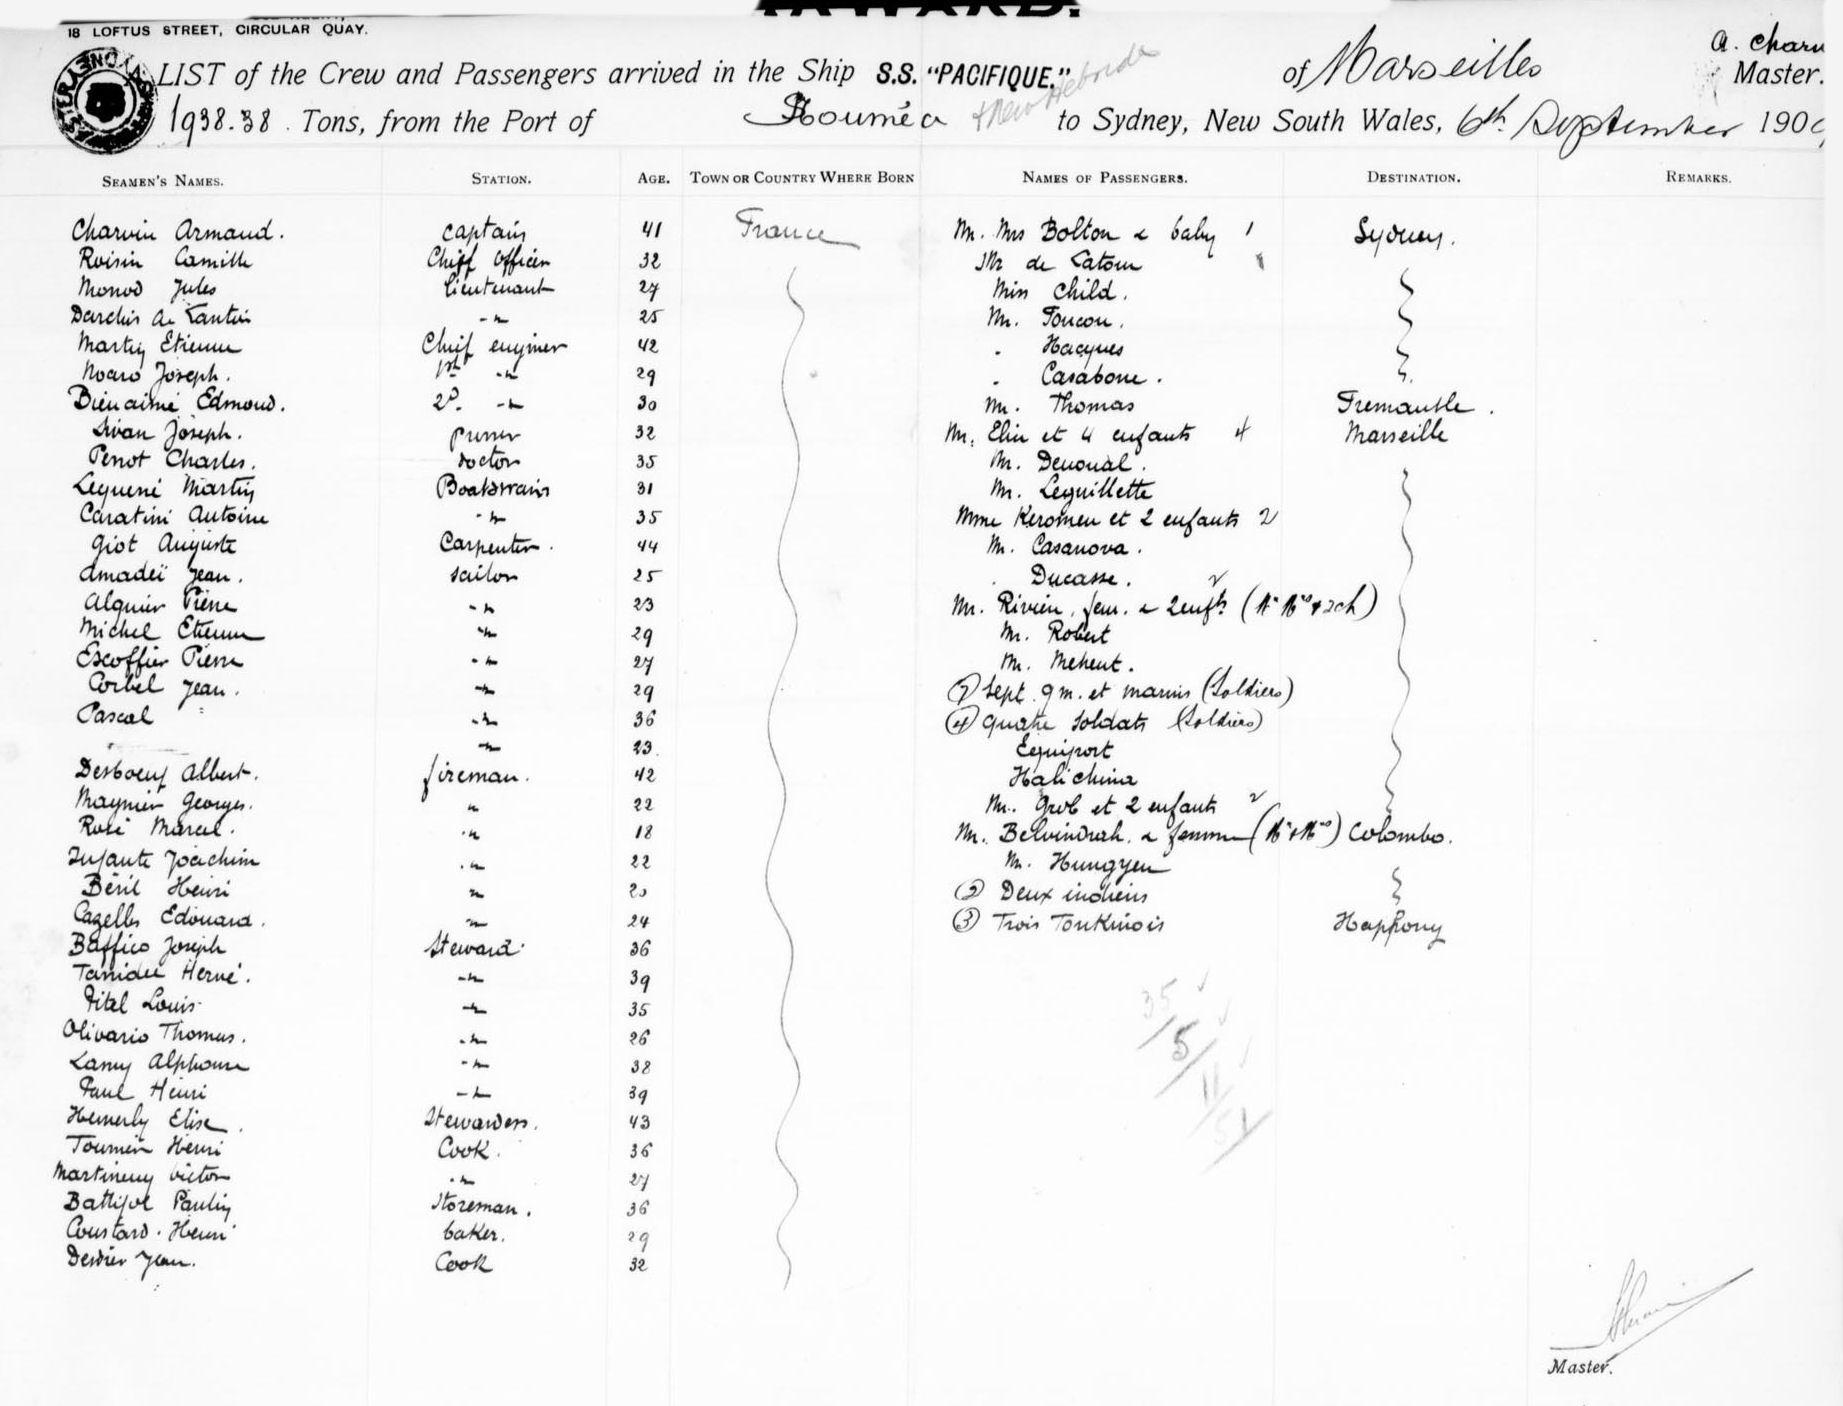 INWARD.
18 LOFTUS STREET, CIRCULAR QUAY.
A. Charv
LIST of the Crew and Passengers arrived in the Ship S.S. "PACIFIQUE." of Marseilles Master.
1938.38 Tons, from the Port of Nouméa & New Hebrides to Sydney, New South Wales, 6th September 190
SEAMEN'S NAMES. STATION. AGE. TOWN OR COUNTRY WHERE BORN NAMES OF PASSENGERS. DESTINATION. REMARKS.
Charvin Armand. captain 41 France Mr. Mrs Bolton & baby 1 Sydney.
Roisin Camille Chief officer 32 Mr de Latour
Monod Jules lieutenant 27 Miss Child.
25 Mr.
Martin Etienne Chief engineer 42 Hacques
Noaro Joseph. 1st 29 Casabone.
Bienaimé Edmond. 2d. 30 Mr. Thomas Fremantle.
Sivan Joseph. purser 32 Mr. et 4 enfants 4 Marseille
Perrot Charles. doctor 35 Mr. Denoual.
Martin Boatswain 31 Mr. Leguillette
Caratini Antoine 35 Mme Keromen et 2 enfants 2
Giot Auguste Carpenter. 44 Mr. Casanova.
Amadeï Jean. sailor 25 Ducasse.
Alquier Pierre 23 Mr. Rivière, fem. & 2 enfts 2 (Mr Mrs & 2 ch)
Michel Etienne 29 Mr. Robert
Escoffier Pierre 27 Mr. Meheut.
Corbel Jean. 29 (7) Sept. qm. et marins (Soldiers)
Pascal " 36 (4) quatre soldats (Soldiers)
23
Desboeuf Albert. fireman. 42 Halichina
Maynier Georges. 22 Mr. Grob et 2 enfants 2
Rosé Marcel. 18 Mr. & femme (Mr & Mrs) Colombo.
Infante Joachim 22 Mr. Hungyen
Béril Henri 20 (2) Deux indiens
Cazelles Edouard. 24 (3) Trois Tonkinois
Baffico Joseph Steward 36
Hervé. 39
Pitel Louis 35
Olivario Thomas. 26
Lamy Alphonse 38
Paul Henri 39
Hemerly Elise. Stewardess. 43
Henri Cook. 36
Martineng Victor 27
Battifol Paulin Storeman. 36
Coustard. Henri baker. 29
Jean. Cook 32
35
5
11
51
Master.